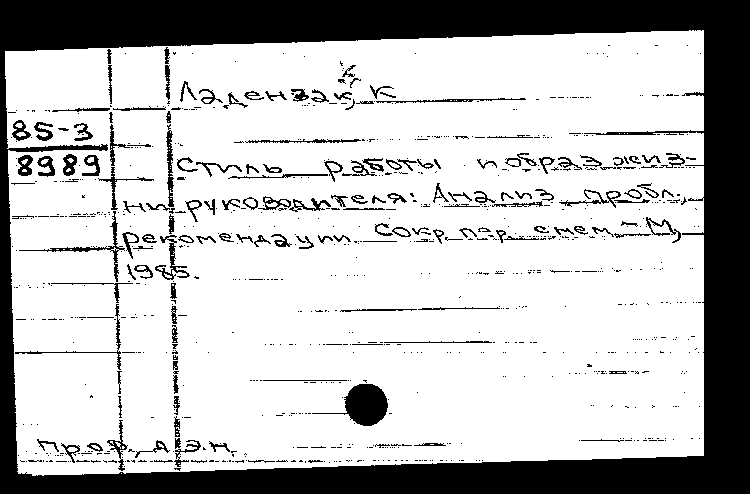 Ладензак, К
85-3
8989
Стиль работы и образ жиз-
ни руководителя: Анализ пробл.,
рекомендации. Сокр. пер. с нем. – М.,
1985.
проф., д.э.н.